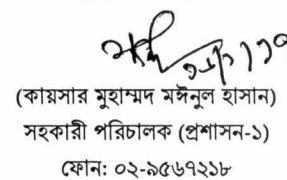 (কায়সার মুহাম্মদ মঈনুল হাসান)
সহকারী পরিচালক (প্রশাসন-১)
ফোন: ০২-৯৫৬৭২১৮